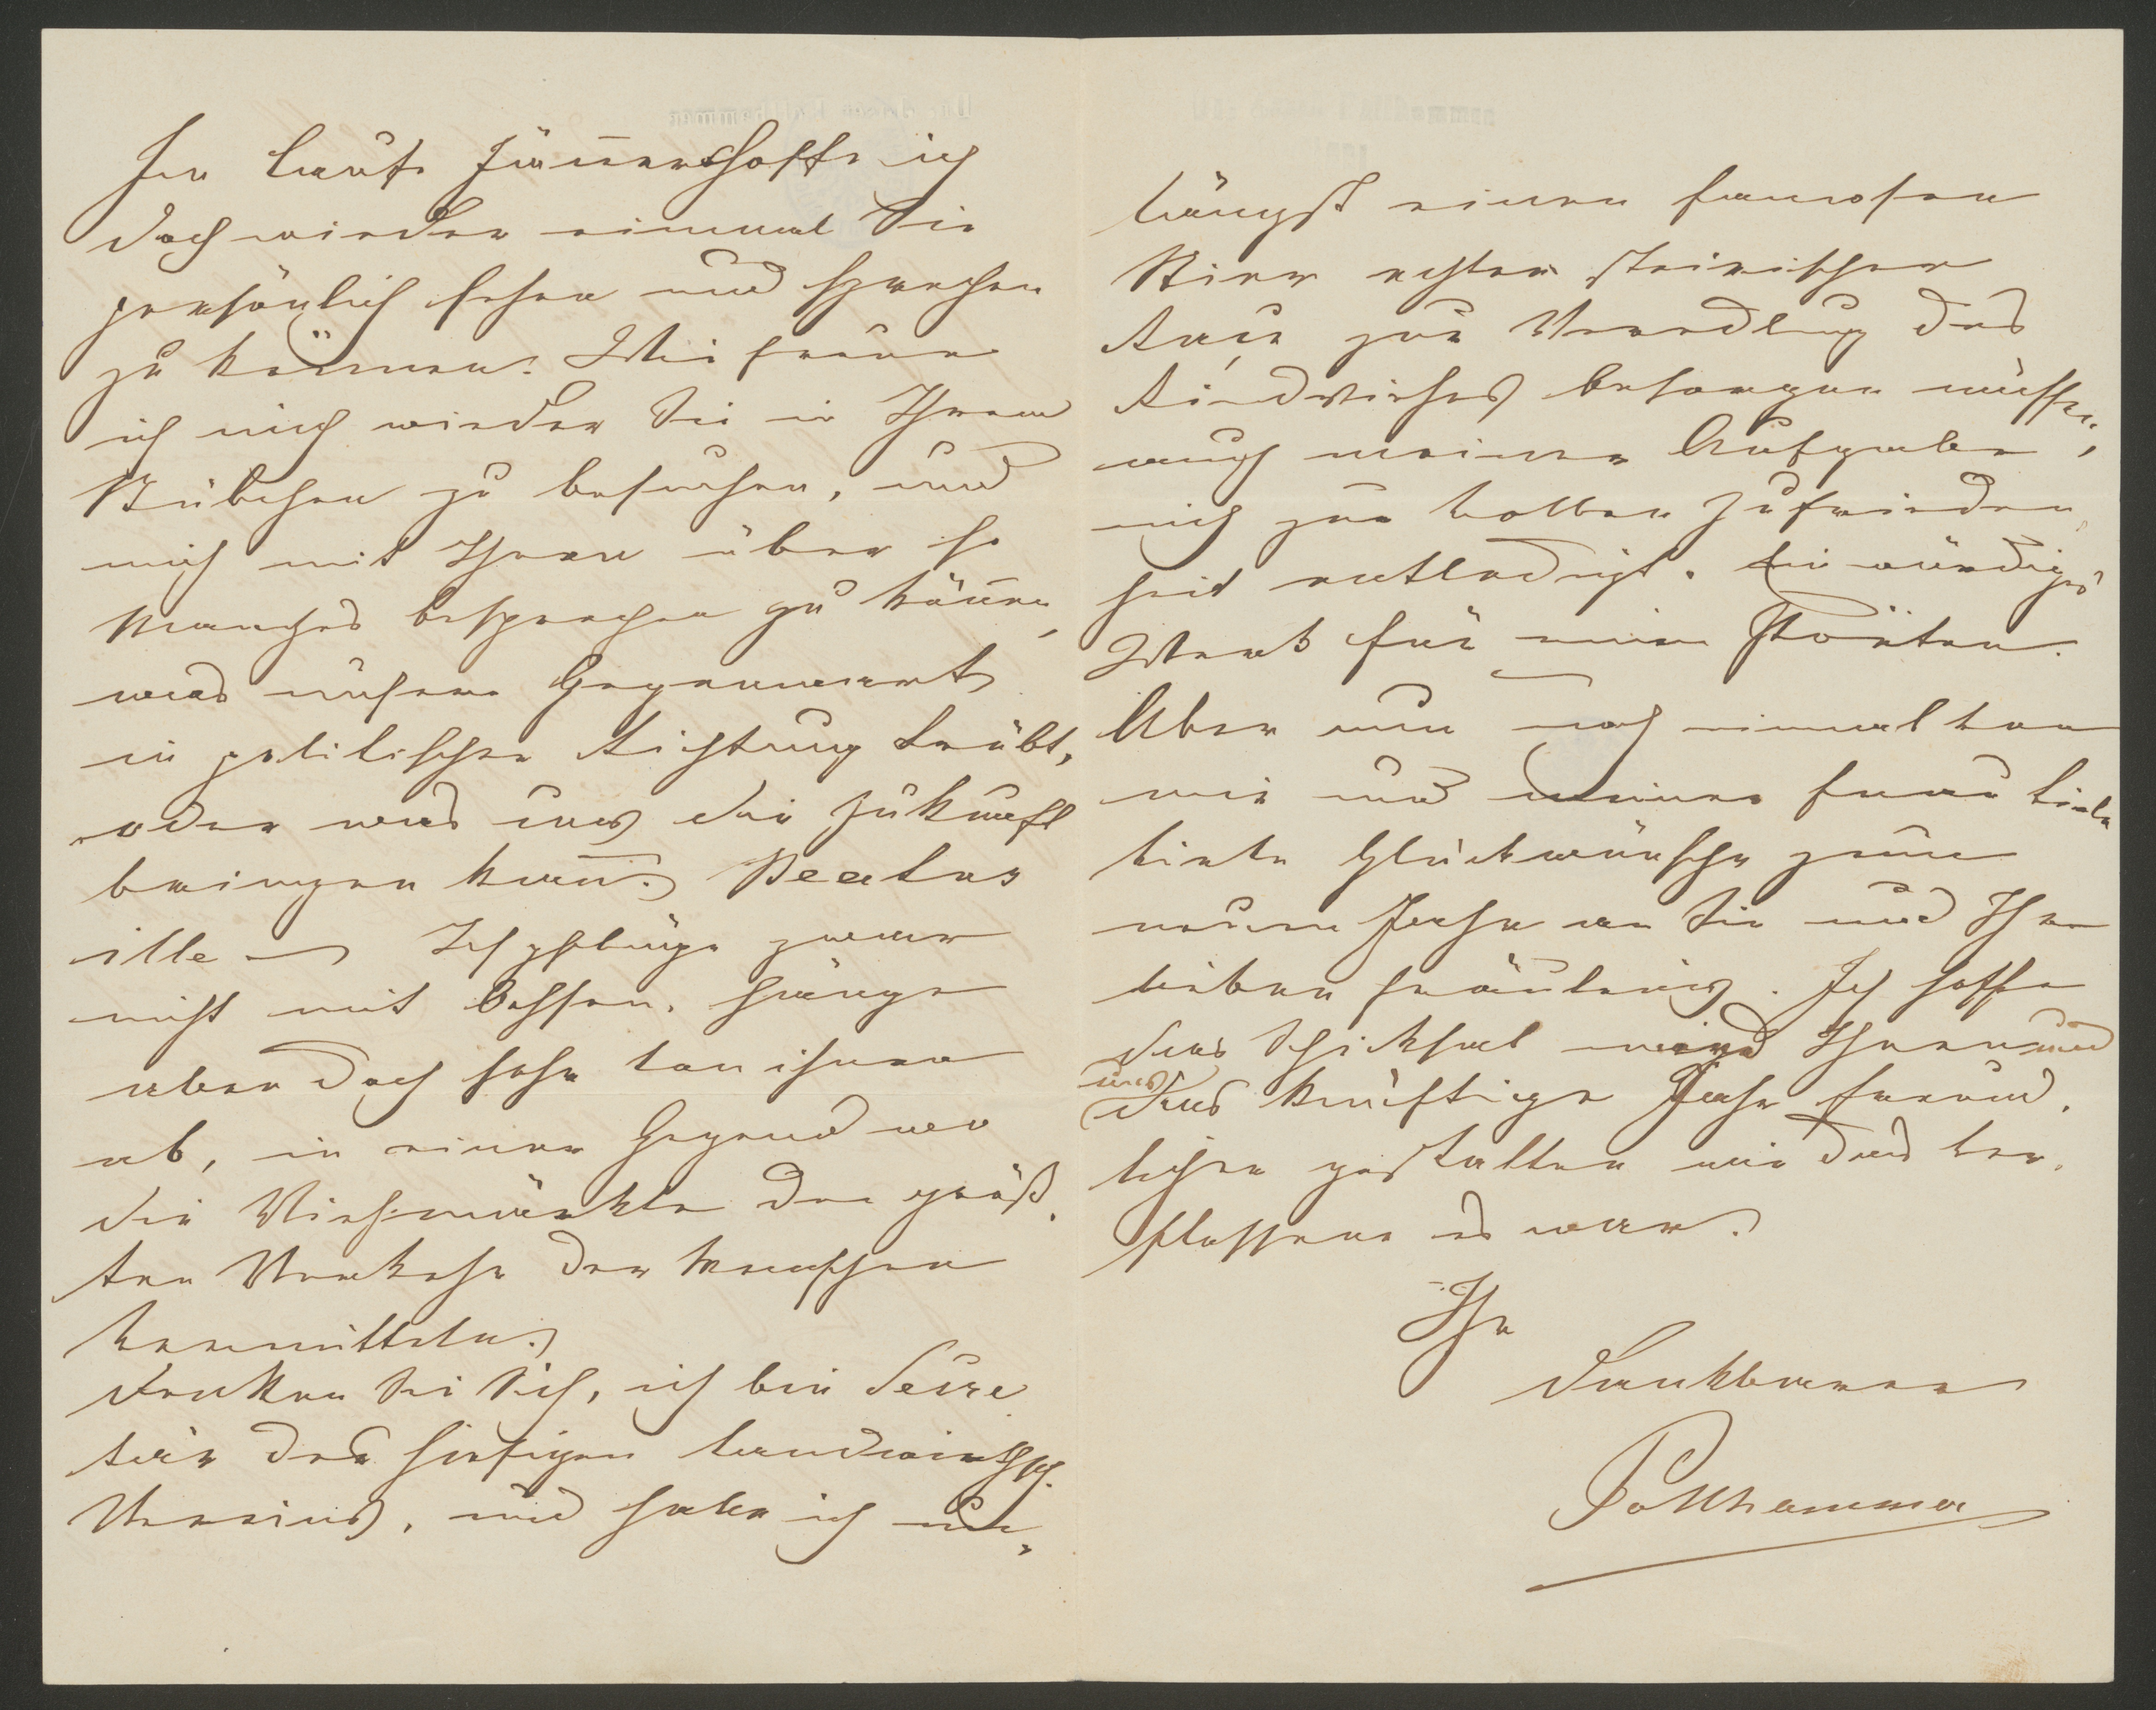 Im Laufe Jänners hoffe ich
doch wieder einmal Sie
persönlich sehen und sprechen
zu können. Wie freue
ich mich wieder Sie in Ihrem
Stübchen zu besuchen, und
mich mit Ihnen über so
Manches besprechen zu können,
was unsere Gegenwart
in politischer Richtung trübt,
oder was uns die Zukunft
bringen kann. Beatus
ille – Ich pflüge zwar
nicht mit Ochsen, hänge
aber doch sehr von ihnen
ab, in einer Gegend wo
die Viehmärkte den größ-
ten Verkehr der Menschen
vermitteln.
Denken Sie Sich, ich bin Secre-
tär des hiesigen landwirthsch.
Vereins, und habe ich un-
längst einen famosen
Stier echter steirischer
Raçe zur Veredlung des
Rindviehes besorgen müssen,
auch meiner Aufgabe,
mich zur vollen Zufrieden-
heit entledigt. Ein würdiges
Werk für einen Poëten.
Aber nun noch einmal von
mir und meiner Frau viele
viele Glückwünsche zum
neuen Jahr an Sie und Ihre
lieben Fräuleins. Ich hoffe
das Schicksal wird Ihnen und
uns das künftige Jahr freund-
licher gestalten wie das ver-
flossene es war.
Ihr
dankbarer